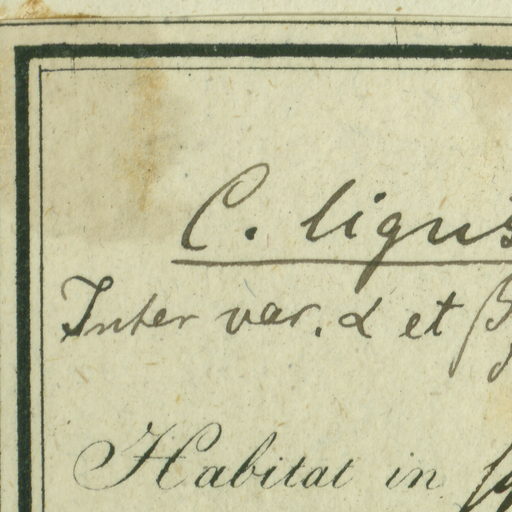 C. ligus
Inter var. α et β
Habitat in